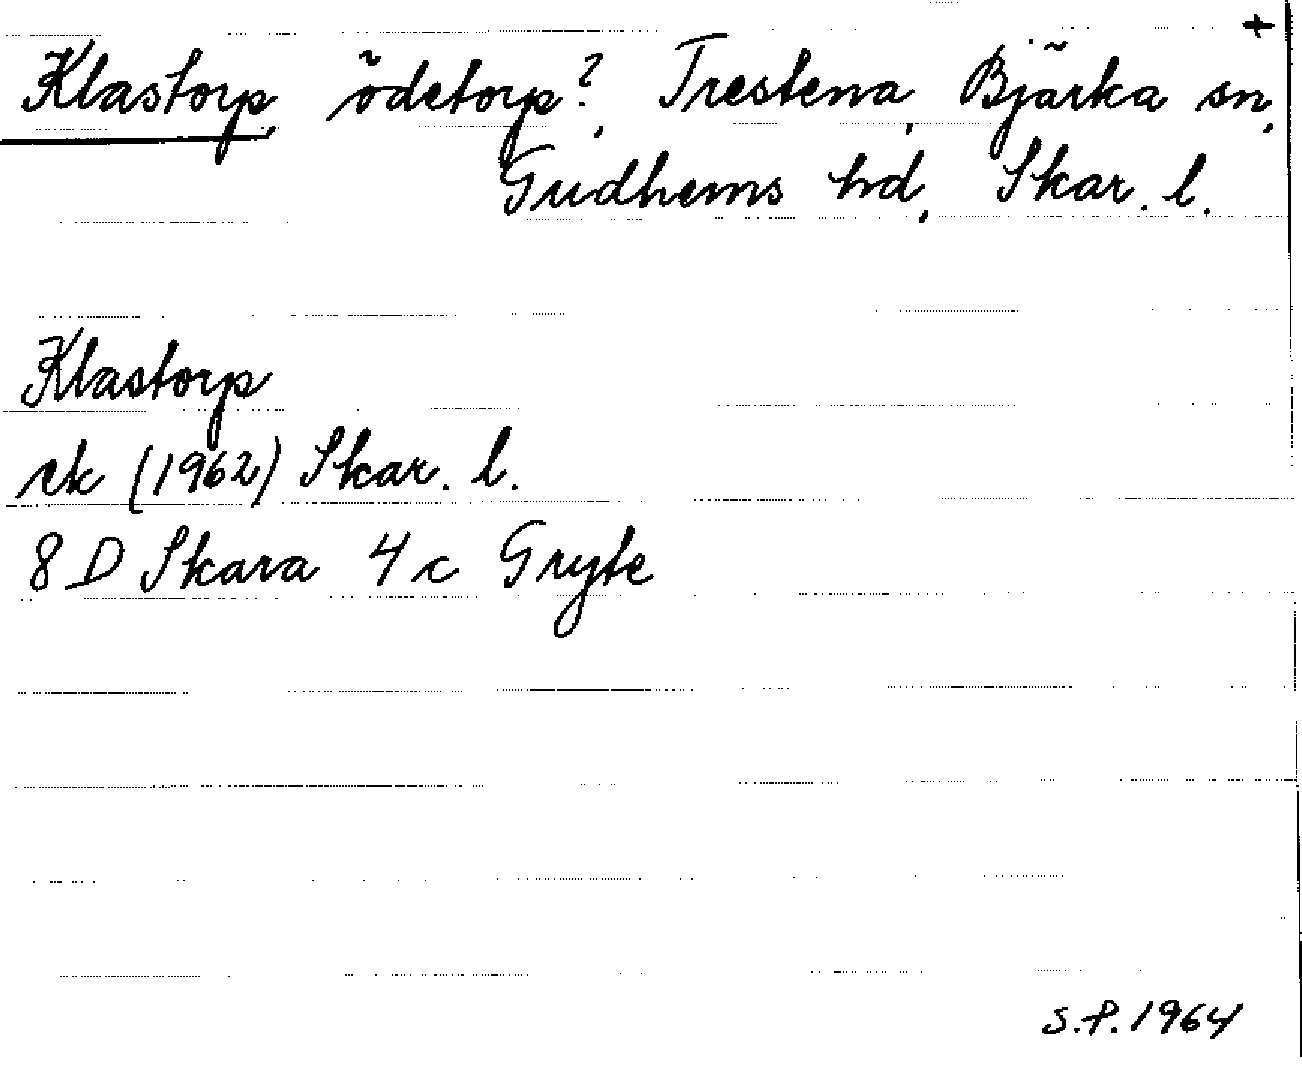 +
Klastorp, ödetorp?, Trestena, Bjärka sn,
Gudhems hd, Skar. l.
Klastorp
ek (1962) Skar. l.
8 D Skara 4 c Gryte
S.P. 1964